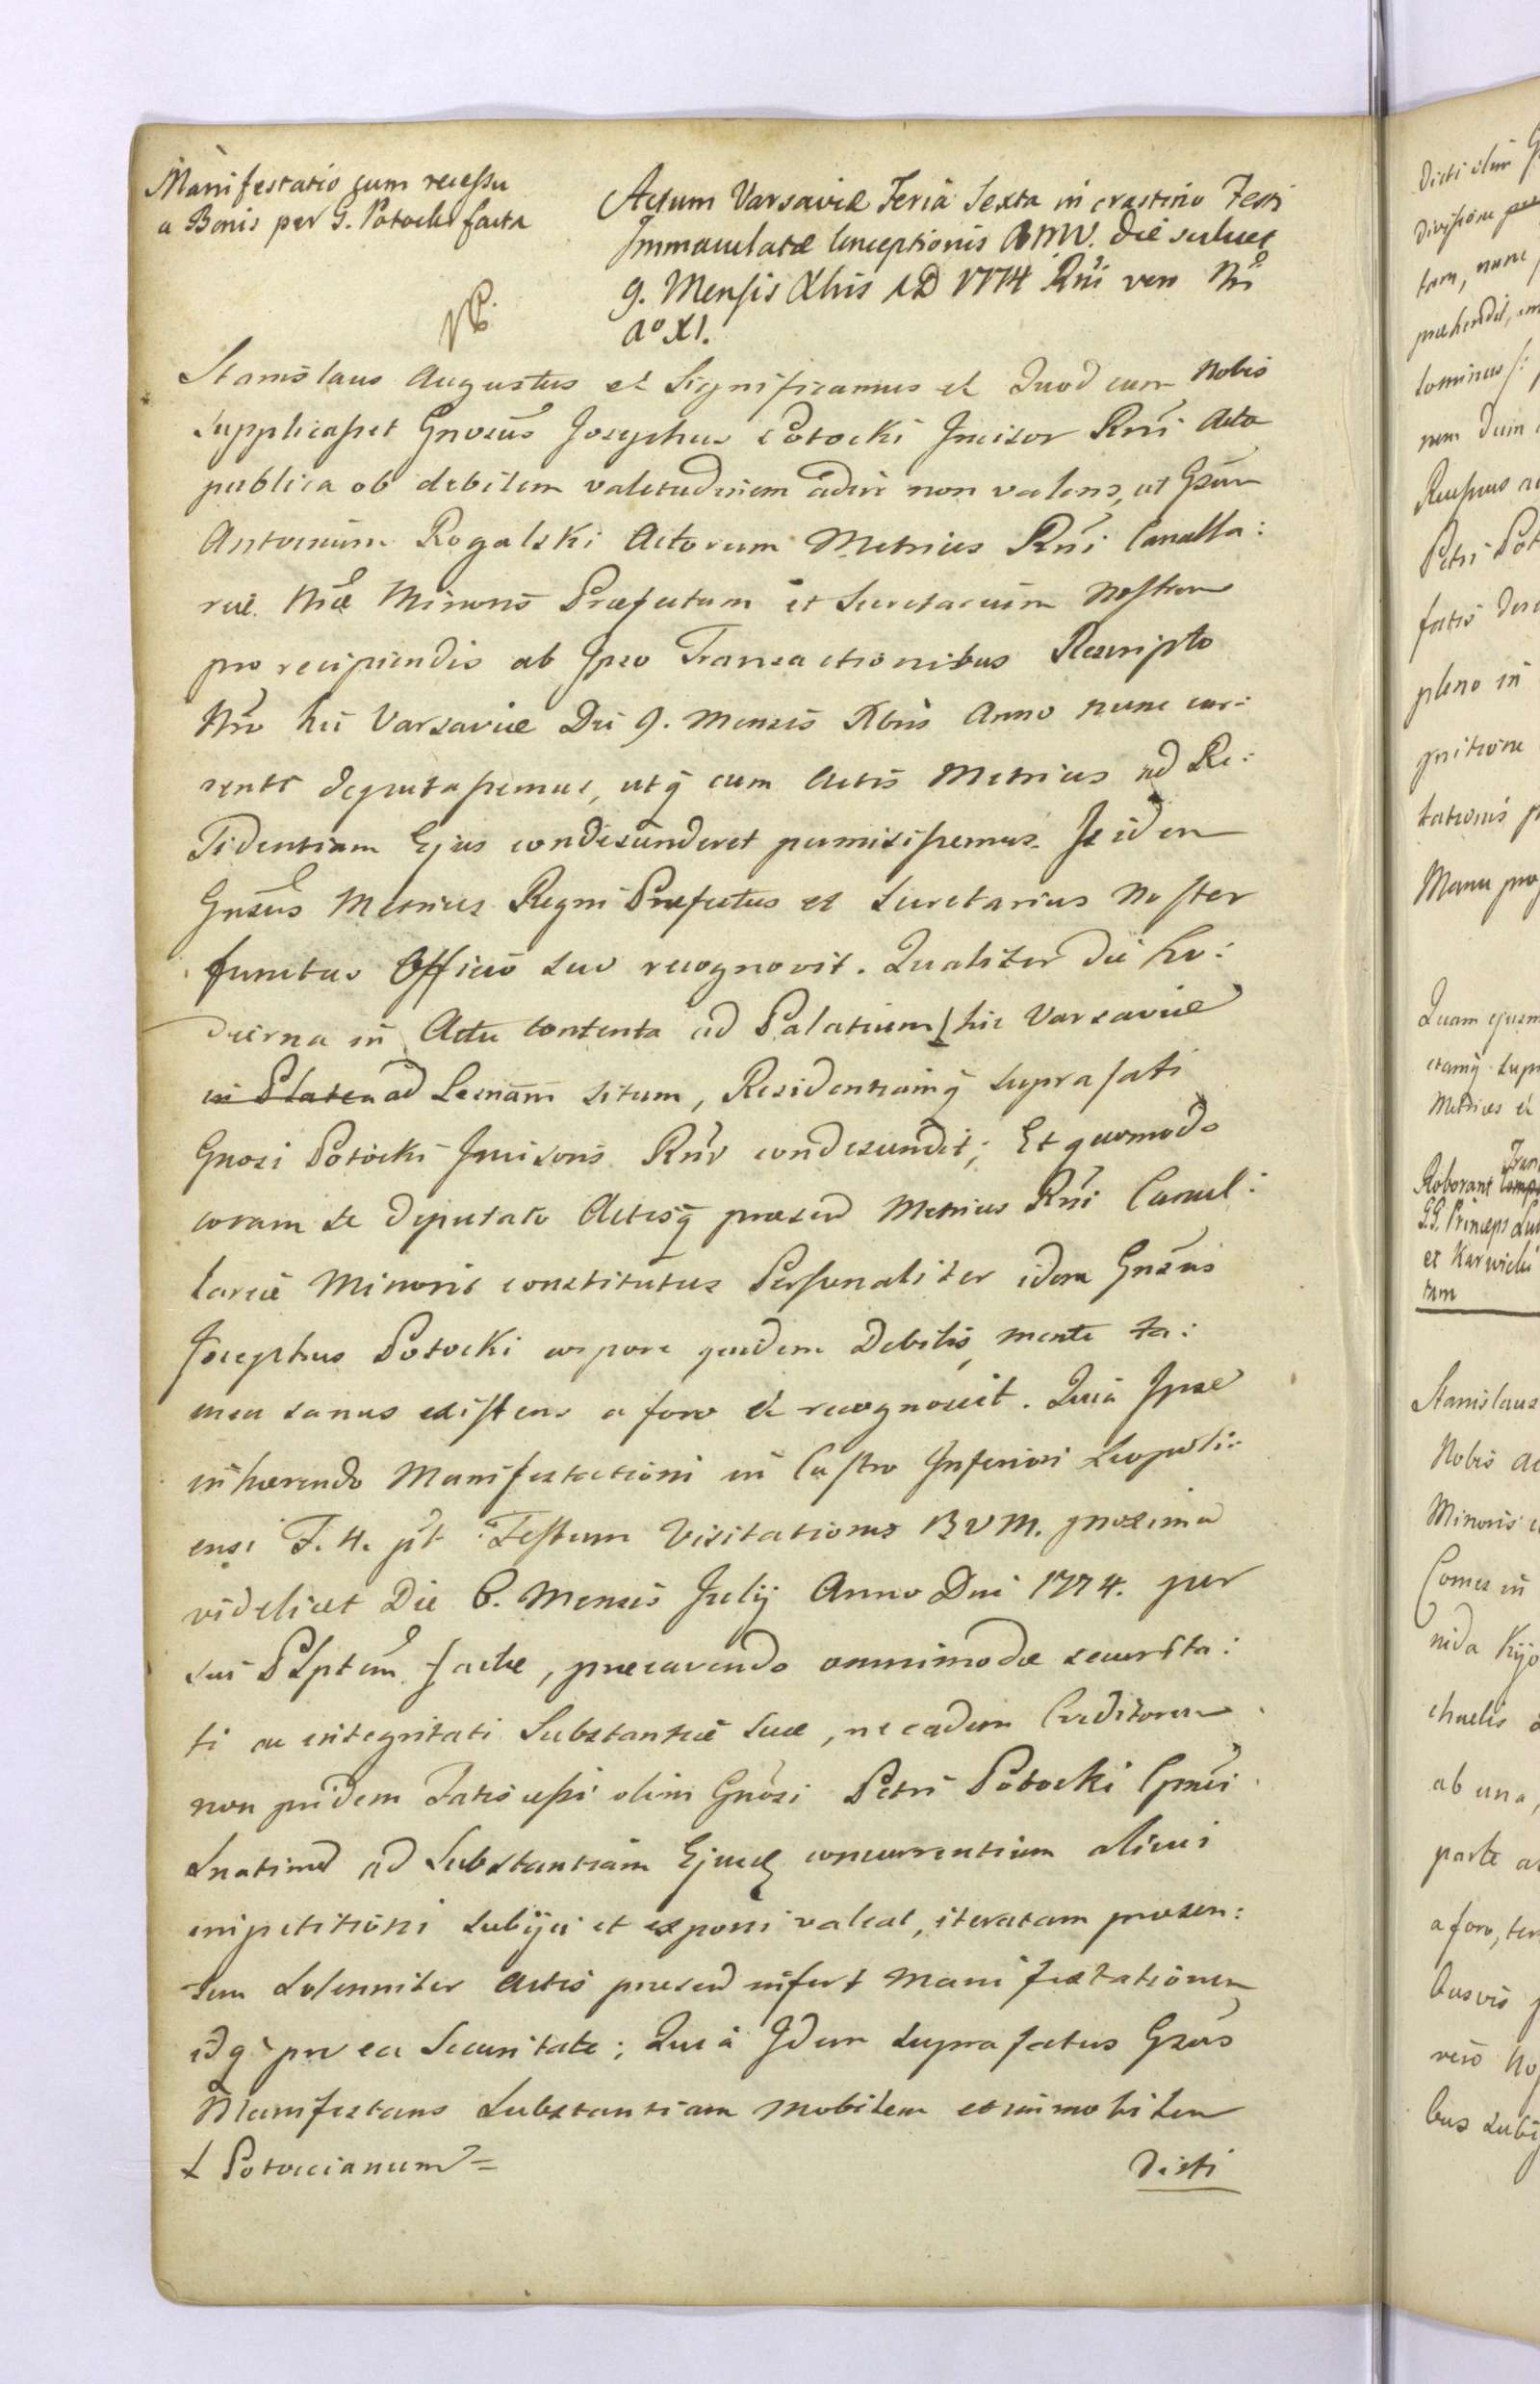 Manifestatio cum recessu
a Bonis per G. Potocki facta
Actum Varsaviæ Feria Sexta in crastino Festi
Immaculatæ Conceptionis BMV. die scilicet
9. Mensis Xbris AD 1774 Rni vero Nri
Aº XI.
Stanislaus Augustus et Significamus et Quod cum Nobis
supplicasset Gnosus Josephus Potocki Incisor Rni Acta
publica ob debilem valetudinem adire non valens, ut Gsum
Antonium Rogalski Actorum Metrices Rni Cancella:
riæ Nræ Minoris Præfectum et Secretarium Nostrum
pro recipiendis ab Ipso Transactionibus Rescripto
Nro hic Varsaviæ Die 9. Mensis Xbris Anno nunc cur:
rente deputassemus, utq cum Actis Metrices ad Re:
sidentiam Ejus condescenderet permisissemus. Is idem
Gnsus Metrices Regni Præfectus et Secretarius Noster
functus Officio suo recognovit. Qualiter Die ho:
dierna in Actu contenta ad Palatium hic Varsaviæ
in Platea ad Lesnam situm, Residentiamq suprafati
Gnosi Potocki Incisoris Rni condescendit; Et quomodo
coram se Deputato Actisq præsend Metrices Rni Cancel:
lariæ Minoris constitutus Personaliter idem Gnsus
Josephus Potocki corpore quidem Debilis, mente ta:
men sanus existens a foro et recognovit. Quia Ipse
inhærendo Manifestationi in Castro Inferiori Leopoli:
ensi F. 4. pt Festum Visitationis BVM. proxima
videlicet Die 6. Mensis July Anno Dni 1774. per
sui factæ, præcavendo omnimodæ securita:
ti ac integritati Substantiæ suæ, ne eadem Creditorum
non pridem Fatis cessi olim Gnosi Petri Potocki
ad Substantiam Ejusd concurrentium alicui
impetitioni subijci et exponi valeat, iteratam præsen:
tem Solenniter Actis præsend infert Manifestationem
idq pro ea Securitate; Quia Idem suprafatus Gsus
Manifestans Substantiam mobilem et immobilem
Potoccianum =
Dicti
Dicti olim
Divisione
tam, nunc
prehendit,
nem Dum
Petri Pot
fatis
pleno in
gnitione
tationis
Manu
Quam ejusm
etamq
Metrices et
Roborant
GG. Princeps
et Karwicki
tum
Stanislaus
Nobis
Minoris
Comes in
ab una,
parte
a foro,